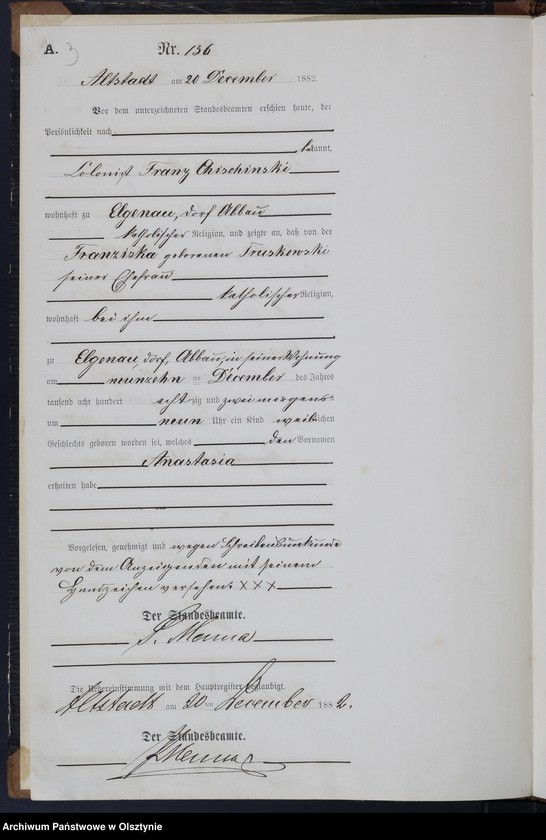 A. 3 Nr. 156
Altstadt am 20 December 1882.
Vor dem unterzeichneten Standesbeamten erschien heute, der
Persönlichkeit nach
bekannt,
Colonist Franz Chischinski
wohnhaft zu Elgenau, dorf Abbau
katholischer Religion, und zeigte an, daß von der
Franziska geborenen Truskowski
seiner Ehefrau
katholischer Religion,
wohnhaft bei ihm
zu Elgenau, dorf, Abbau, in seiner Wohnung
am neunzehn ten December des Jahres
tausend acht hundert acht zig und zwei morgens
um neun Uhr ein Kind weiblichen
Geschlechts geboren worden sei, welches den Vornamen
Anastasia
erhalten habe
Vorgelesen, genehmigt und wegen Schreibensunkunde
von dem Anzeigenden mit seinem
Handzeichen versehen. XXX
Der Standesbeamte.
Die Uebereinstimmung mit dem Hauptregister beglaubigt.
Altstadt am 20 ten December 1882.
Der Standesbeamte.
Archiwum Państwowe w Olsztynie